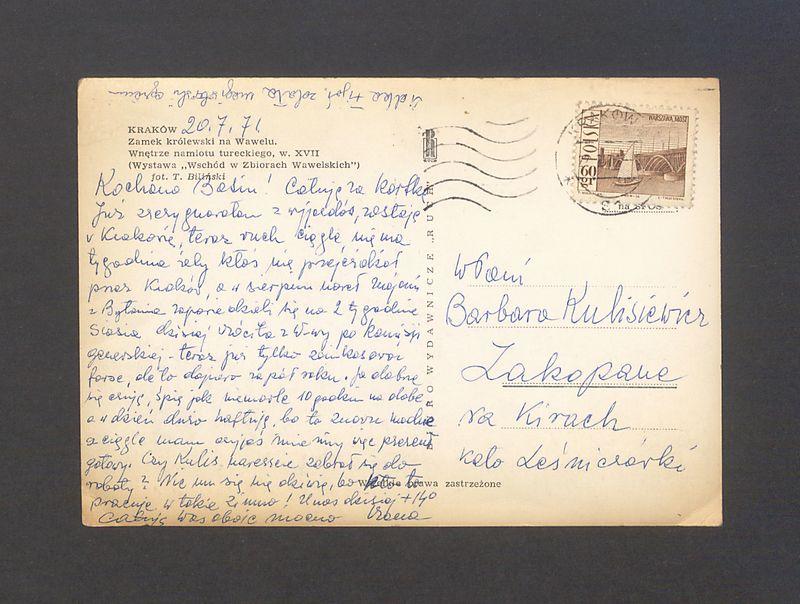 KRAKÓW 20.7.71.
Zamek królewski na Wawelu.
Wnętrze namiotu tureckiego, w. XVII
(Wystawa „Wschód w Zbiorach Wawelskich”)
fot. T. Biliński
Kochana Basiu! Całuję za kartkę
Już zrezygnowałam z wyjazdów, zostaję
w Krakowie, teraz ruch ciągle nie ma
tygodnia żeby ktoś nie przejeżdżał
przez Kraków, a w sierpniu nawet znajomi
z Bytomia zapowiedzieli się na 2 tygodnie
Stasia dzisiaj wróciła z W-wy po komisji
teraz już tylko zainkasować
forsę, ale to dopiero za pół roku. Ja dobrze
się czuję, śpię jak niemowlę 10 godzin na dobę
a w dzień dużo haftuję, bo to znowu modne
a ciągle mam czyjeś imieniny więc prezent
gotowy. Czy Kulis nareszcie zabrał się do
roboty? Nie mu się nie dziwię, bo
pracuje w takie zimno! U nas dzisiaj +14°
Całuję Was oboje mocno
BIURO WYDAWNICZE „RUCH”
KRAKÓW
POLSKA
60 GR
WARSZAWA MOST
W Pani
Barbara Kulisiewicz
Zakopane
na Kirach
koło Leśniczówki
Wszelkie prawa zastrzeżone